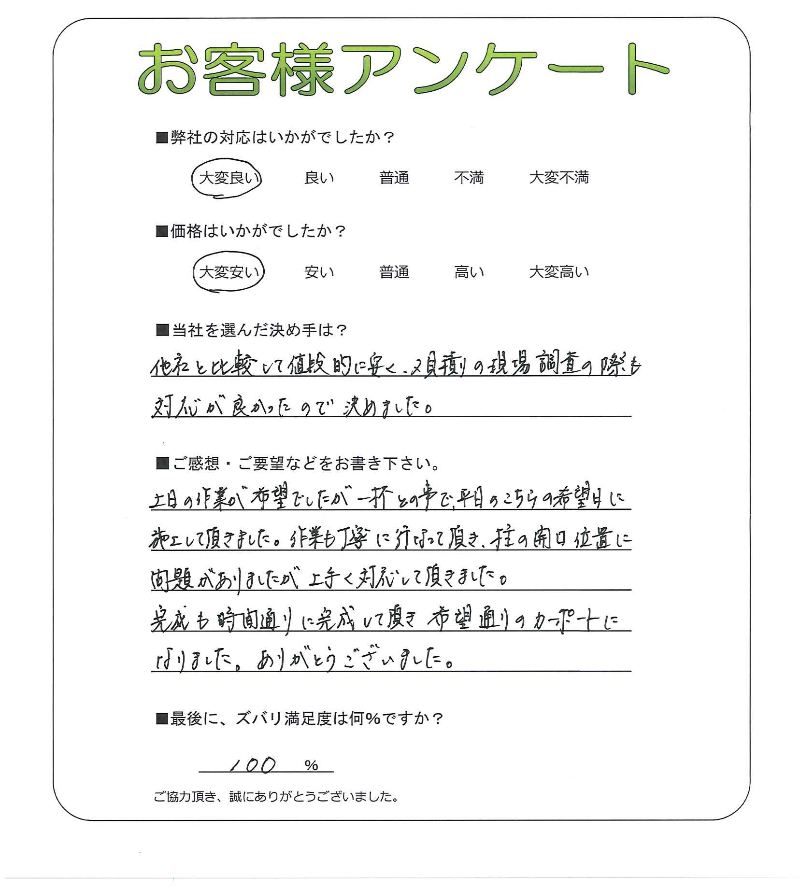 お客様アンケート
■弊社の対応はいかがでしたか？
大変良い 良い 普通 不満 大変不満
■価格はいかがでしたか？
大変安い 安い 普通 高い 大変高い
■当社を選んだ決め手は？
他社と比較して値段的に安く、又見積りの現場調査の際も
対応が良かったので決めました。
■ご感想・ご要望などをお書き下さい。
土日の作業が希望でしたが一杯との事で、平日のこちらの希望日に
施工して頂きました。作業も丁寧に行なって頂き、柱の開口位置に
問題がありましたが上手く対応して頂きました。
完成も時間通りに完成して頂き希望通りのカーポートに
なりました。ありがとうございました。
■最後に、ズバリ満足度は何％ですか？
100 %
ご協力頂き、誠にありがとうございました。